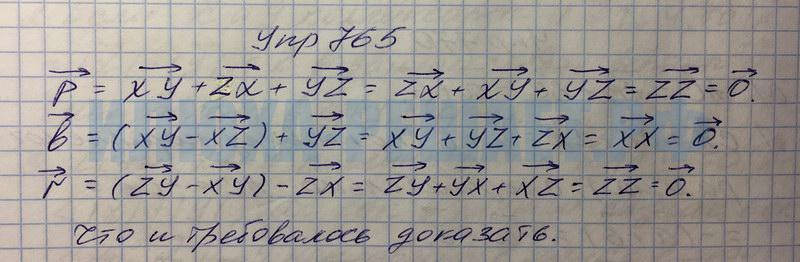 Упр 765
p⃗ = x⃗y⃗ + z⃗x⃗ + y⃗z⃗ = z⃗x⃗ + x⃗y⃗ + y⃗z⃗ = z⃗z⃗ = 0⃗.
b⃗ = (x⃗y⃗ - x⃗z⃗) + y⃗z⃗ = x⃗y⃗ + y⃗z⃗ + z⃗x⃗ = x⃗x⃗ = 0⃗.
r⃗ = (z⃗y⃗ - x⃗y⃗) - z⃗x⃗ = z⃗y⃗ + y⃗x⃗ + x⃗z⃗ = z⃗z⃗ = 0⃗.
Что и требовалось доказать.